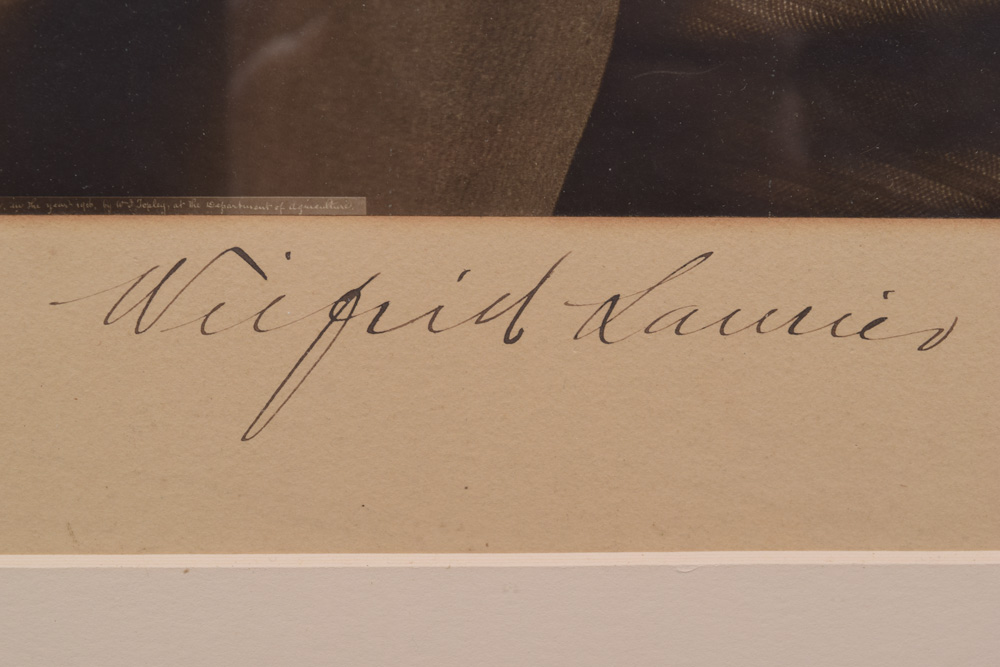 in the year 1906, by W J Topley, at the Department of Agriculture.
Wilfrid Laurier